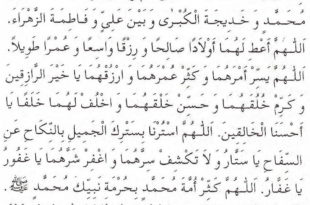 مُحَمَّد و خَدِيجَةَ الْكُبْرَى وَ بَيْنَ عَلِيٍّ وَ فَاطِمَةَ الزَّهْرَاءِ.
اَللّٰهُمَّ أَعْطِ لَهُمَا أَوْلاَدًا صَالِحًا وَ رِزْقًا وَاسِعًا وَ عُمْرًا طَوِيلاً.
اَللّٰهُمَّ يَسِّرْ أَمْرَهُمَا وَ كَثِّرْ عُمْرَهُمَا وَ ارْزُقْهُمَا يَا خَيْرَ الرَّازِقِينَ
وَ كَرِّمْ خُلُقَهُمَا وَ حَسِّنْ خَلْقَهُمَا وَ اخْلُفْ لَهُمَا خَلَفًا يَا
أَحْسَنَا الْخَالِقِينَ. اَللّٰهُمَّ اسْتُرْنَا بِسَتْرِكَ الْجَمِيلِ بِالنِّكَاحِ عَنِ
السِّفَاحِ يَا سَتَّارُ وَ لاَ تَكْشِفْ سِرَّهُمَا وَ اغْفِرْ شَرَّهُمَا يَا غَفُورُ
يَا غَفَّارُ. اَللّٰهُمَّ كَثِّرْ أُمَّةَ مُحَمَّدٍ بِحُرْمَةِ نَبِيِّكَ مُحَمَّدٍ ﷺ.